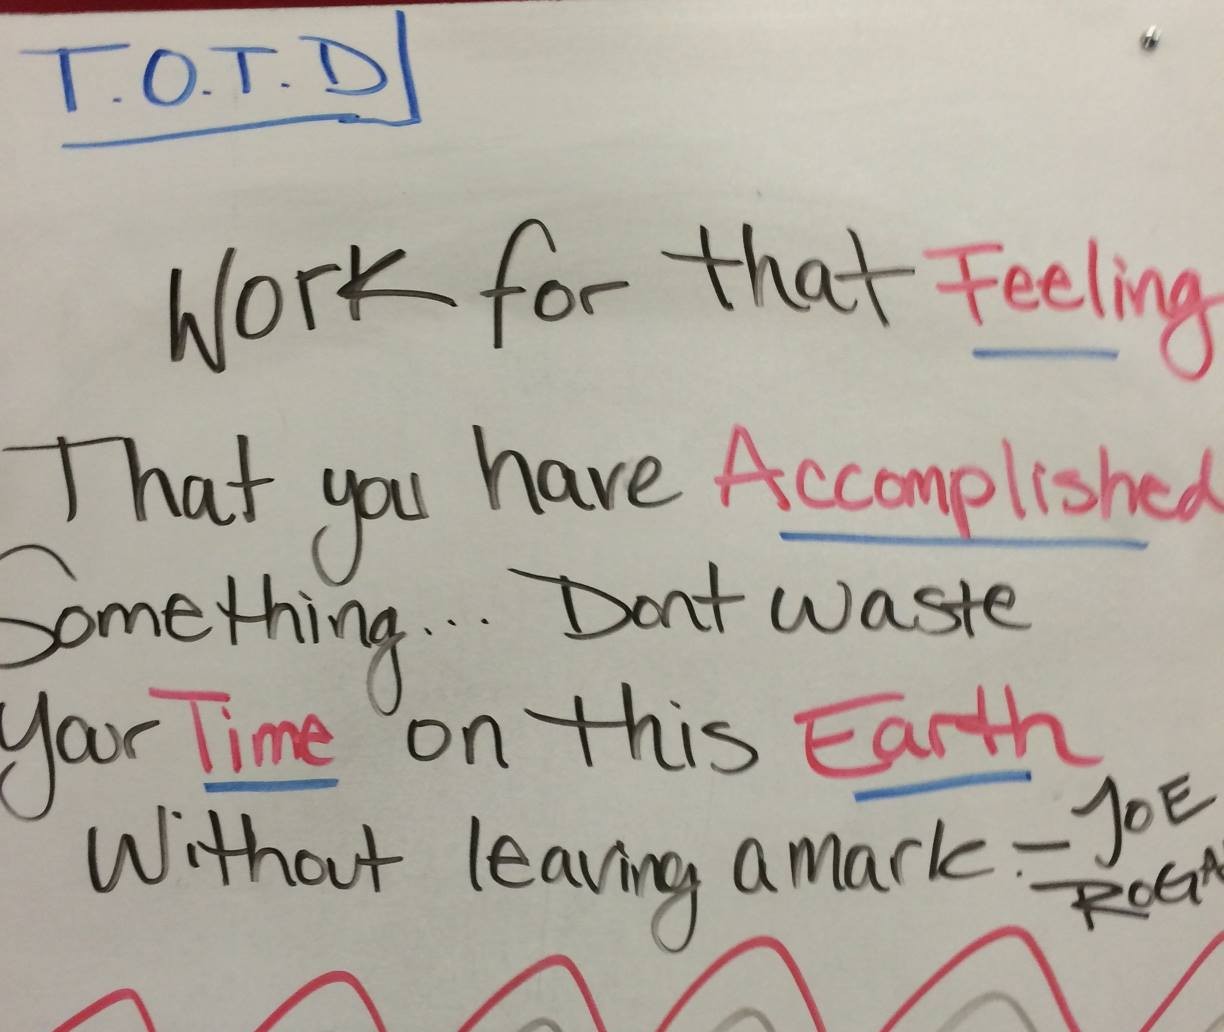 T.O.T.D
Work for that Feeling
That you have Accomplished
Something... Dont waste
your Time on this Earth
Without leaving a mark. - JOE
ROGA